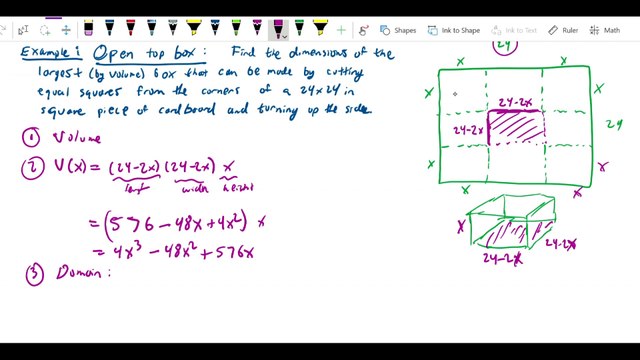 Shapes
Ink to Shape
Ink to Math
Example: Open top box: Find the dimensions of the
largest (by volume) box that can be made by cutting
equal squares from the corners of a 24x24 in
square piece of cardboard and turning up the sides
① Volume
② V(x) = (24-2x)(24-2x) x
width height
= (576 - 48x + 4x²) x
= 4x³ - 48x² + 576x
③ Domain:
24
x x
x x
24-2x
24-2x
24
x x
x x
x
24-2x
24-2x